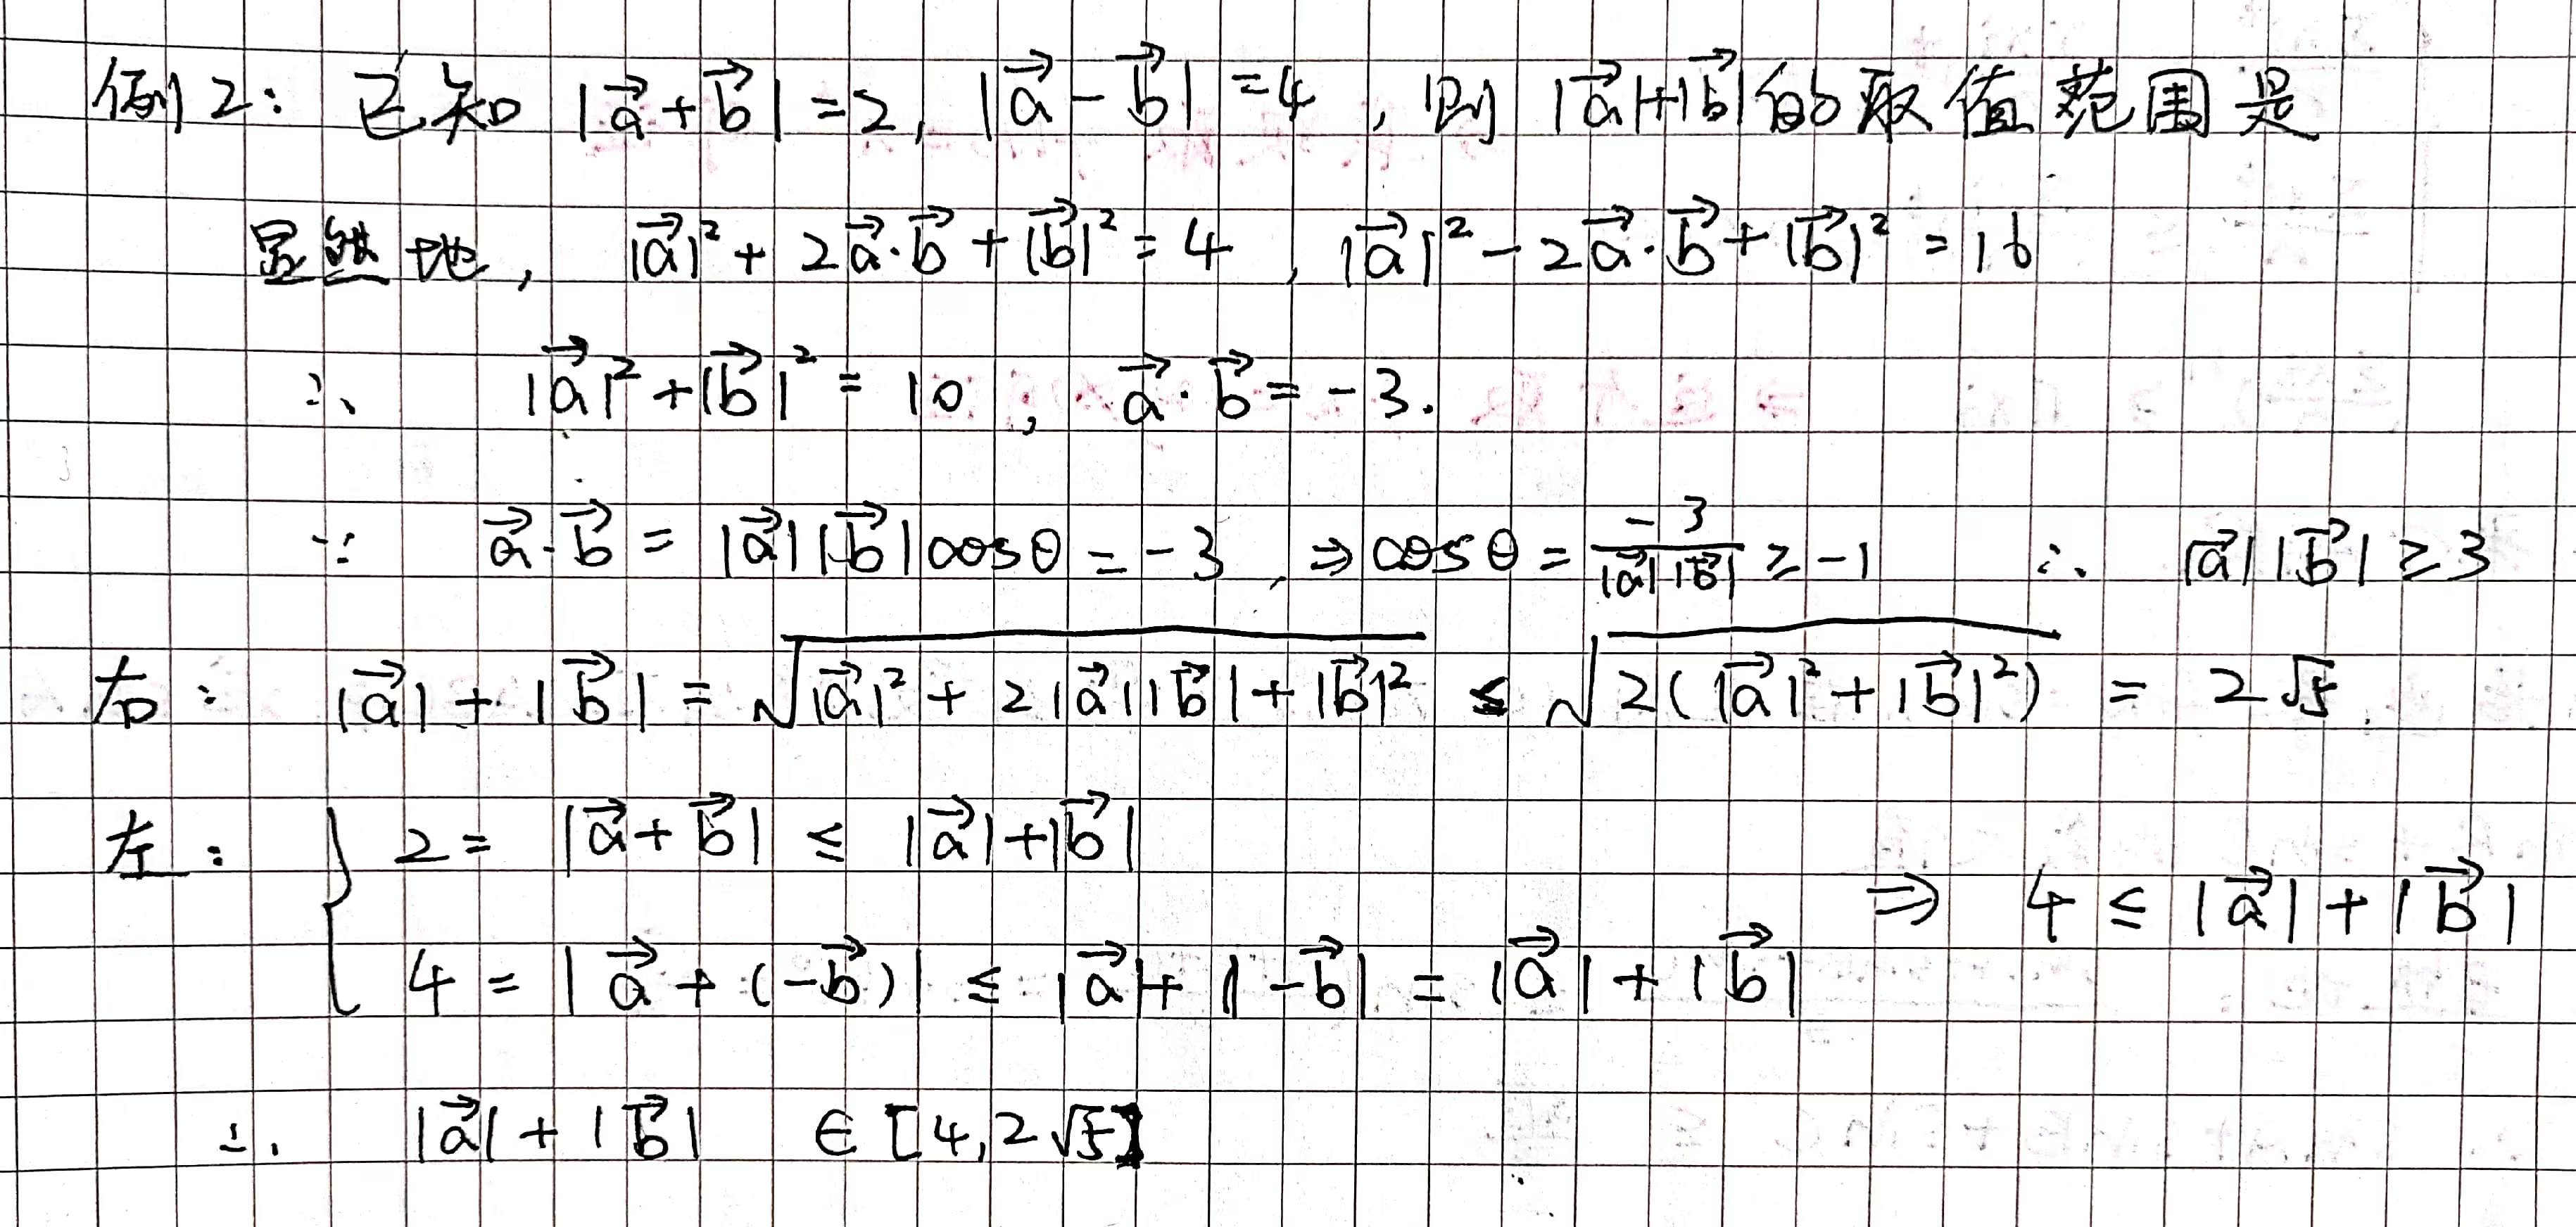 例2: 已知 |a⃗+b⃗|=2, |a⃗-b⃗|=4, 则 |a⃗|+|b⃗| 的取值范围是
显然地, |a⃗|²+2a⃗·b⃗+|b⃗|²=4, |a⃗|²-2a⃗·b⃗+|b⃗|²=16
∴ |a⃗|²+|b⃗|²=10, a⃗·b⃗=-3.
∵ a⃗·b⃗=|a⃗||b⃗|cosθ=-3, ⇒cosθ=-3/(|a⃗||b⃗|)≥-1 ∴ |a⃗||b⃗|≥3
右: |a⃗|+|b⃗|=√(|a⃗|²+2|a⃗||b⃗|+|b⃗|²)≤√(2(|a⃗|²+|b⃗|²))=2√5.
左: { 2=|a⃗+b⃗|≤|a⃗|+|b⃗|
4=|a⃗+(-b⃗)|≤|a⃗|+|-b⃗|=|a⃗|+|b⃗| ⇒ 4≤|a⃗|+|b⃗|
∴ |a⃗|+|b⃗| ∈[4,2√5]